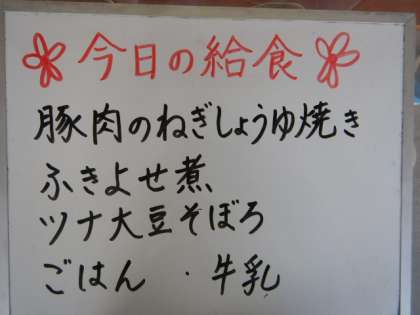 今日の給食
豚肉のねぎしょうゆ焼き
ふきよせ煮
ツナ大豆そぼろ
ごはん ・ 牛乳